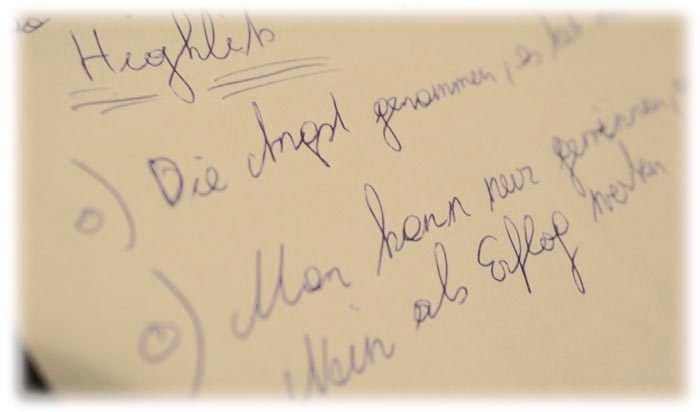 Highlits
o) Die Angst genommen, es hat
o) Man kann nur gewinnen,
Nein als Erflog werten